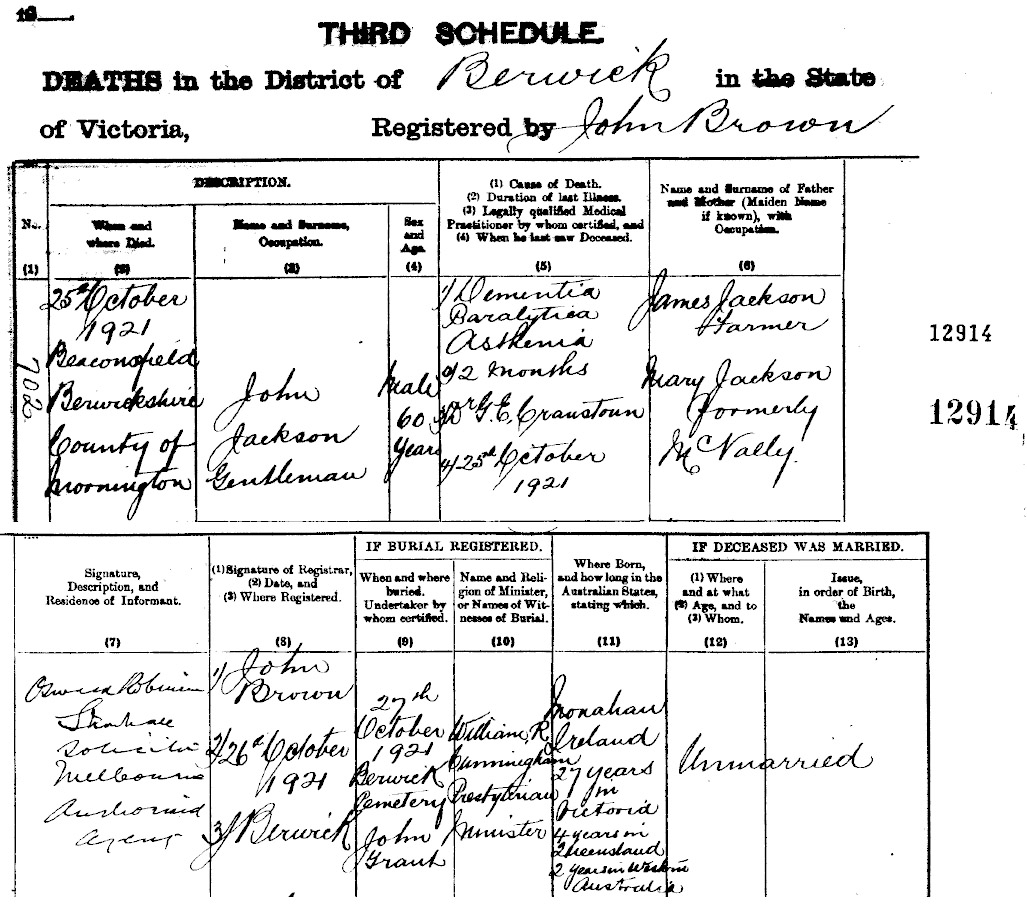 THIRD SCHEDULE.
DEATHS in the District of Berwick in the State
of Victoria, Registered by John Brown
DESCRIPTION.
No.
(1)
When and
where Died.
(2)
Name and Surname,
Occupation.
(3)
Sex
and
Age.
(4)
(1) Cause of Death.
(2) Duration of last Illness.
(3) Legally qualified Medical
Practitioner by whom certified, and
(4) When he last saw Deceased.
(5)
Name and Surname of Father
and Mother (Maiden Name
if known), with
Occupation.
(6)
702
25th October
1921
Beaconsfield
Berwickshire
County of
Mornington
John
Jackson
Gentleman
Male
60
Years
1/ Dementia
Paralytica
Asthenia
2/ 2 months
3/ Dr G.E. Cranstoun
4/ 25th October
1921
James Jackson
Farmer
Mary Jackson
formerly
McNally.
12914
12914
Signature,
Description, and
Residence of Informant.
(7)
(1) Signature of Registrar,
(2) Date, and
(3) Where Registered.
(8)
IF BURIAL REGISTERED.
When and where
buried.
Undertaker by
whom certified.
(9)
Name and Reli-
gion of Minister,
or Names of Wit-
nesses of Burial.
(10)
Where Born,
and how long in the
Australian States,
stating which.
(11)
IF DECEASED WAS MARRIED.
(1) Where
and at what
(2) Age, and to
(3) Whom.
(12)
Issue,
in order of Birth,
the
Names and Ages.
(13)
Solicitor
Melbourne
Authorised
agent
1/ John
Brown
2/ 26th October
1921
3/ Berwick
27th
October
1921
Berwick
Cemetery
John
Grant
William R.
Cunningham
Presbyterian
Minister
Monahan
Ireland
27 years
in
Victoria
4 years in
Queensland
2 years in Western
Australia
Unmarried